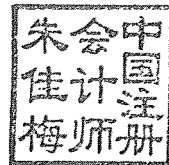 中国注册
会计师
朱佳梅